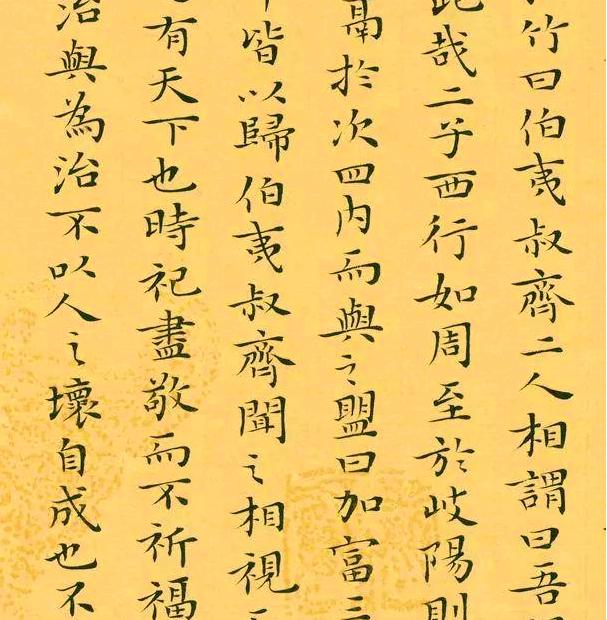 竹曰伯夷叔齊二人相謂曰吾
哉二子西行如周至於岐陽則
鬲於次四內而與之盟曰加富三
皆以歸伯夷叔齊聞之相視
有天下也時祀盡敬而不祈福
治與為治不以人之壞自成也不